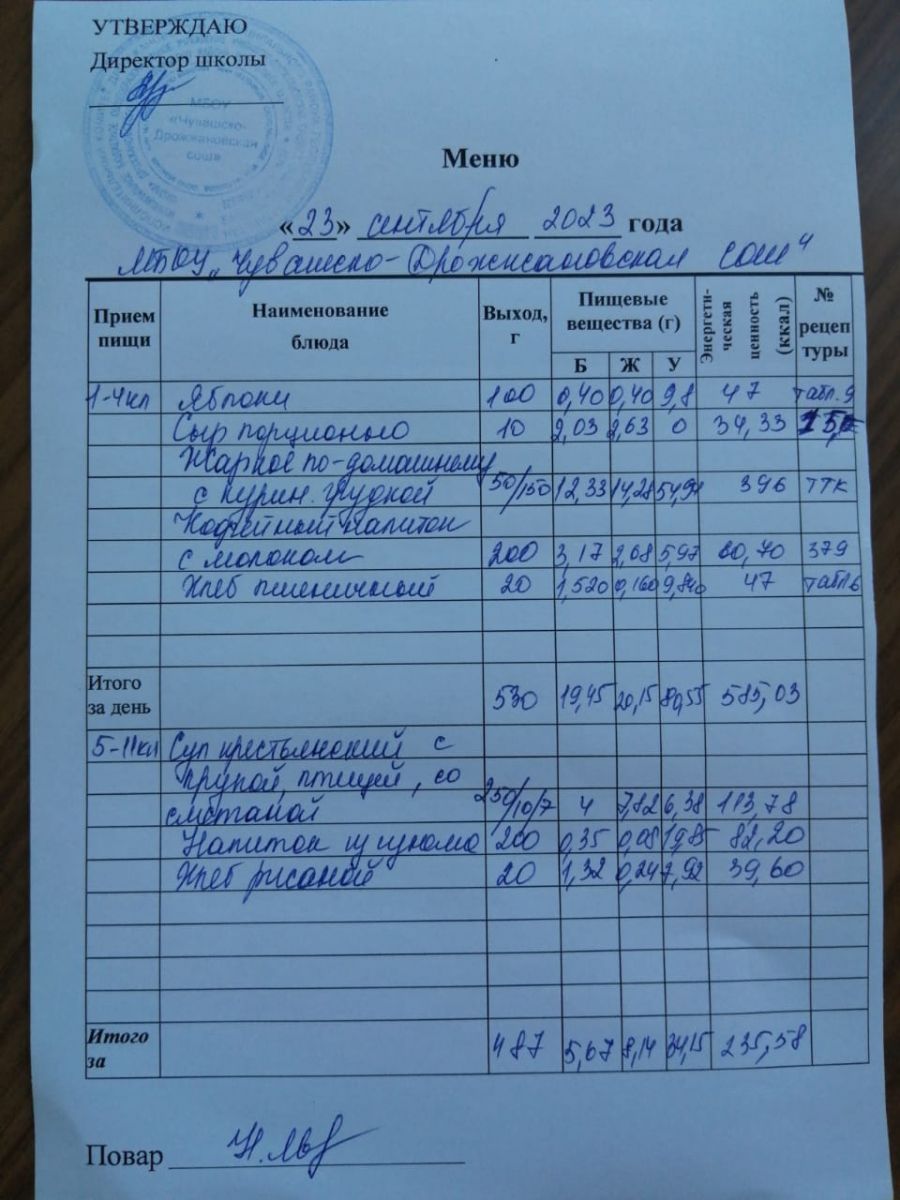 УТВЕРЖДАЮ
Директор школы
МБОУ
«Чувашско-
Дрожжановская
сош»
Меню
«23» сентября 2023 года
МБОУ „Чувашско-Дрожжановская сош"
Прием пищи Наименование блюда Выход, г Пищевые вещества (г) Энергети-ческая ценность (ккал) № рецеп туры
Б Ж У
1-4кл Яблоки 100 0,40 0,40 9,8 47 табл. 9
Сыр порционого 10 2,03 2,63 0 34,33
Жаркое по-домашнему
с курин. грудкой 50/150 12,33 14,28 54,94 396 ТТК
Кофейный напиток
с молоком 200 3,17 2,68 5,97 60,70 379
Хлеб пшеничный 20 1,520 0,160 9,840 47 табл 6
Итого за день 530 19,45 20,15 80,55 585,03
5-11кл Суп крестьянский с
крупой, птицей, со
сметаной 250/10/7 4 7,82 6,38 113,78
Напиток из изюма 200 0,35 0,08 19,85 82,20
Хлеб ржаной 20 1,32 0,24 7,92 39,60
Итого за 487 5,67 8,14 34,15 235,58
Повар